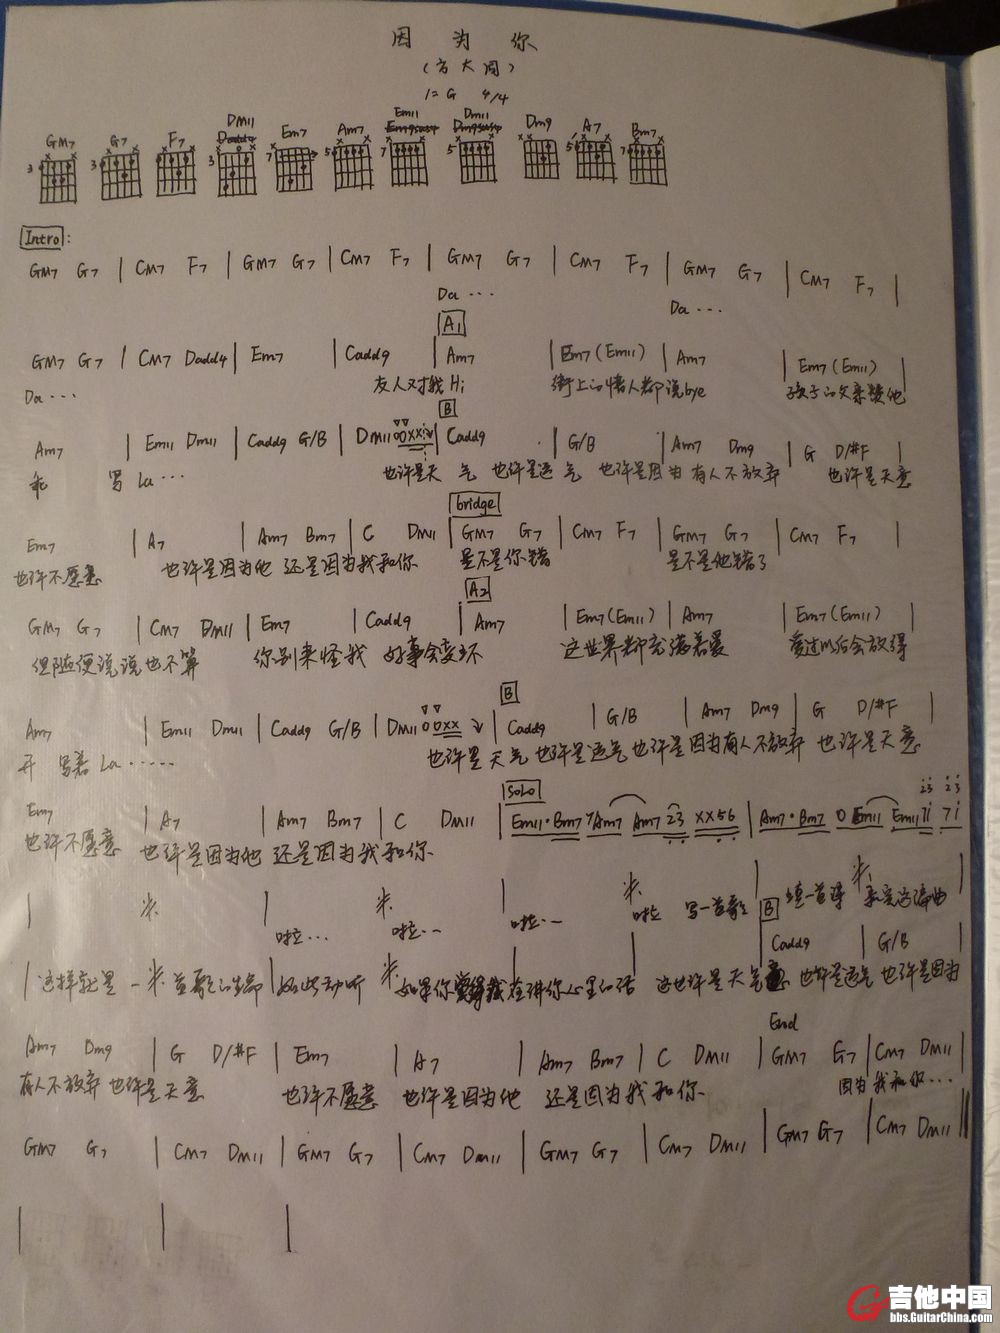 因为你
(方大同)
1=G 4/4
GM7 G7 F7 DM11 Em7 Am7 Em11 Dm11 Dm9 A7 Bm7
3 3 3 7 5 7 5 5 7
Intro:
GM7 G7 | CM7 F7 | GM7 G7 | CM7 F7 | GM7 G7 | CM7 F7 | GM7 G7 | CM7 F7 |
Da ... Da ...
A1
GM7 G7 | CM7 Dadd4 | Em7 | Cadd9 | Am7 | Em7(Em11) | Am7 | Em7(Em11) |
Da ... 友人对我 Hi 街上的情人都说bye 孩子的父亲 他
B
Am7 | Em11 Dm11 | Cadd9 G/B | DM11 00xx | Cadd9 | G/B | Am7 Dm9 | G D/#F |
写 La ... 也许是天气 也许是运气 也许是因为有人不放弃 也许是天意
bridge
Em7 | A7 | Am7 Bm7 | C DM11 | GM7 G7 | CM7 F7 | GM7 G7 | CM7 F7 |
也许不愿意 也许是因为他 还是因为我和你 是不是你错 是不是他错了
A2
GM7 G7 | CM7 DM11 | Em7 | Cadd9 | Am7 | Em7(Em11) | Am7 | Em7(Em11) |
但随便说说也不算 你别来怪我 好事会变坏 这世界都充满着爱 爱过以后会放得
B
Am7 | Em11 Dm11 | Cadd9 G/B | DM11 00xx | Cadd9 | G/B | Am7 Dm9 | G D/#F |
开 写着 La ...... 也许是天气 也许是运气 也许是因为有人不放弃 也许是天意
Solo
Em7 | A7 | Am7 Bm7 | C DM11 | Em11·Bm7 7 Am7 Am7 23 xx56 | Am7·Bm7 0 Em11 Em11 71 71 |
也许不愿意 也许是因为他 还是因为我和你
啦... 啦... 啦... 啦 写一首歌 填一首诗
B
Cadd9 | G/B |
这样就是一首歌的生命 如此动听 如果你 在讲你心里的话 这也许是天气 也许是运气 也许是因为
End
Am7 Dm9 | G D/#F | Em7 | A7 | Am7 Bm7 | C DM11 | GM7 G7 | CM7 DM11 |
有人不放弃 也许是天意 也许不愿意 也许是因为他 还是因为我和你 因为我和你...
GM7 G7 | CM7 DM11 | GM7 G7 | CM7 Dm11 | GM7 G7 | CM7 DM11 | GM7 G7 | CM7 DM11 ||
吉他中国
bbs.GuitarChina.com